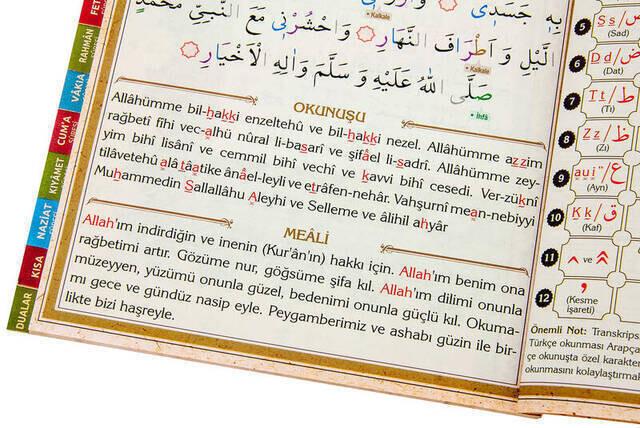 بِهِ جَسَدِي
Kalkale
الَّيْلِ وَ اَطْرَافَ النَّهَارِ وَاحْشُرْنِي مَعَ النَّبِيِّ مُحَمَّدٍ
Kalkale
صَلَّى اللهُ عَلَيْهِ وَ سَلَّمَ وَالِهِ الْاَخْيَارِ
İhfâ
OKUNUŞU
Allâhümme bil-hakki enzeltehû ve bil-hakki nezel. Allâhümme azzim
rağbetî fîhi vec-alhü nûral li-basarî ve şifâel li-sadrî. Allâhümme zey-
yim bihî lisânî ve cemmil bihî vechî ve kavvi bihî cesedî. Ver-züknî
tilâvetehû alâ tâatike ânâel-leyli ve etrâfen-nehâr. Vahşurnî mean-nebiyyi
Muhammedin Sallallâhu Aleyhi ve Selleme ve âlihil ahyâr
MEÂLİ
Allah'ım indirdiğin ve inenin (Kur'ân'ın) hakkı için. Allah'ım benim ona
rağbetimi artır. Gözüme nur, göğsüme şifa kıl. Allah'ım dilimi onunla
müzeyyen, yüzümü onunla güzel, bedenimi onunla güçlü kıl. Okuma-
mı gece ve gündüz nasip eyle. Peygamberimiz ve ashabı güzin ile bir-
likte bizi haşreyle.
FET
RAHMÂN
SÛRESİ
VÂKIA
SÛRESİ
CUM'A
SÛRESİ
KIYÂMET
NAZİAT
KISA
DUALAR
5
Ss/ص
(Sad)
6
Dd/ض
(Dat)
7
Tt/ط
(Tı)
8
Zz/ظ
(Zı)
9
(Ayn)
10
Kk/ق
(Kaf)
11
ve
12
(Kesme
işareti)
Önemli Not: Transkrips
Türkçe okunması Arapça
çe okunuşta özel karakte
okunmasını kolaylaştırmak